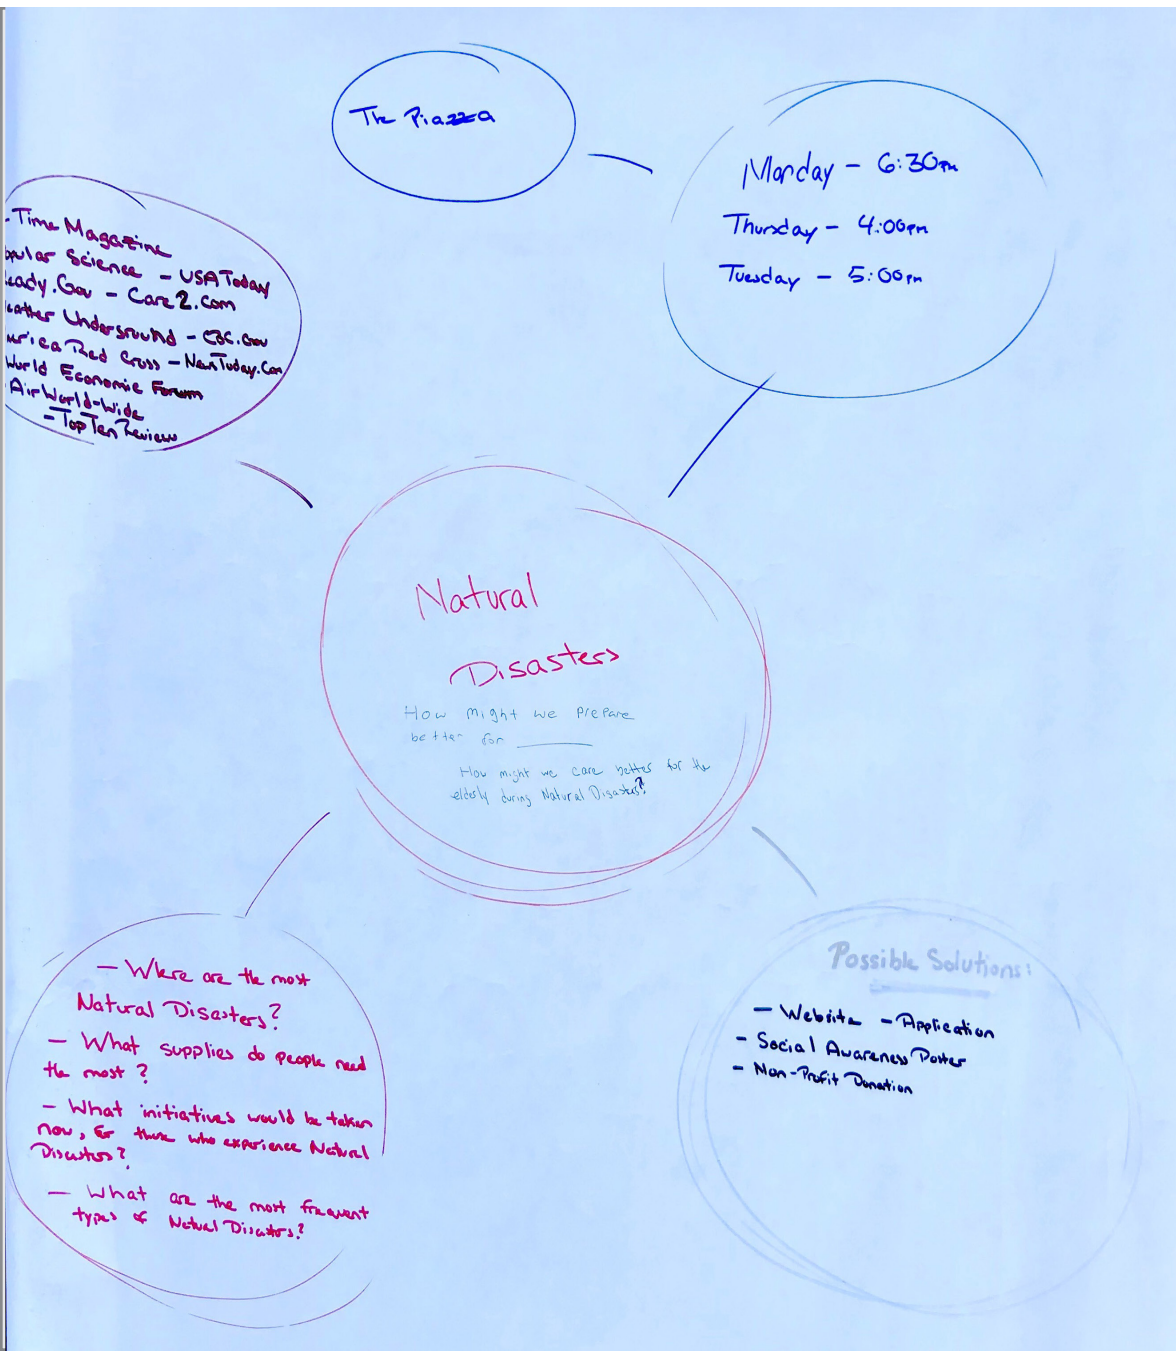 The Piazza
Monday - 6:30pm
Thursday - 4:00pm
Tuesday - 5:00pm
- Time Magazine
pular Science - USA Today
eady.Gov - Care2.com
eather Underground - CDC.Gov
merica Red Cross - NewsToday.Com
World Economic Forum
AirWorld-Wide
- TopTenReview
Natural
Disasters
How might we prepare
better for ______
How might we care better for the
elderly during Natural Disaster?
- Where are the most
Natural Disasters?
- What supplies do people need
the most?
- What initiatives would be taken
now, for those who experience Natural
Disasters?
- What are the most frequent
types of Natural Disasters?
Possible Solutions:
- Website - Application
- Social Awareness Poster
- Non-Profit Donation